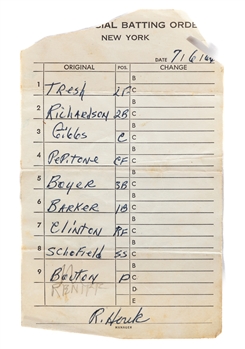 CIAL BATTING ORDE
NEW YORK
DATE 7/6/66
ORIGINAL POS. CHANGE
1 Tresh LF B C
2 Richardson 2B B C
3 Gibbs C B C
4 Pepitone CF B C
5 Boyer 3B B C
6 Barker 1B B C
7 Clinton RF B C
8 Schofield SS B C
9 Bouton P B C
Reniff D
E
R. Houk
MANAGER